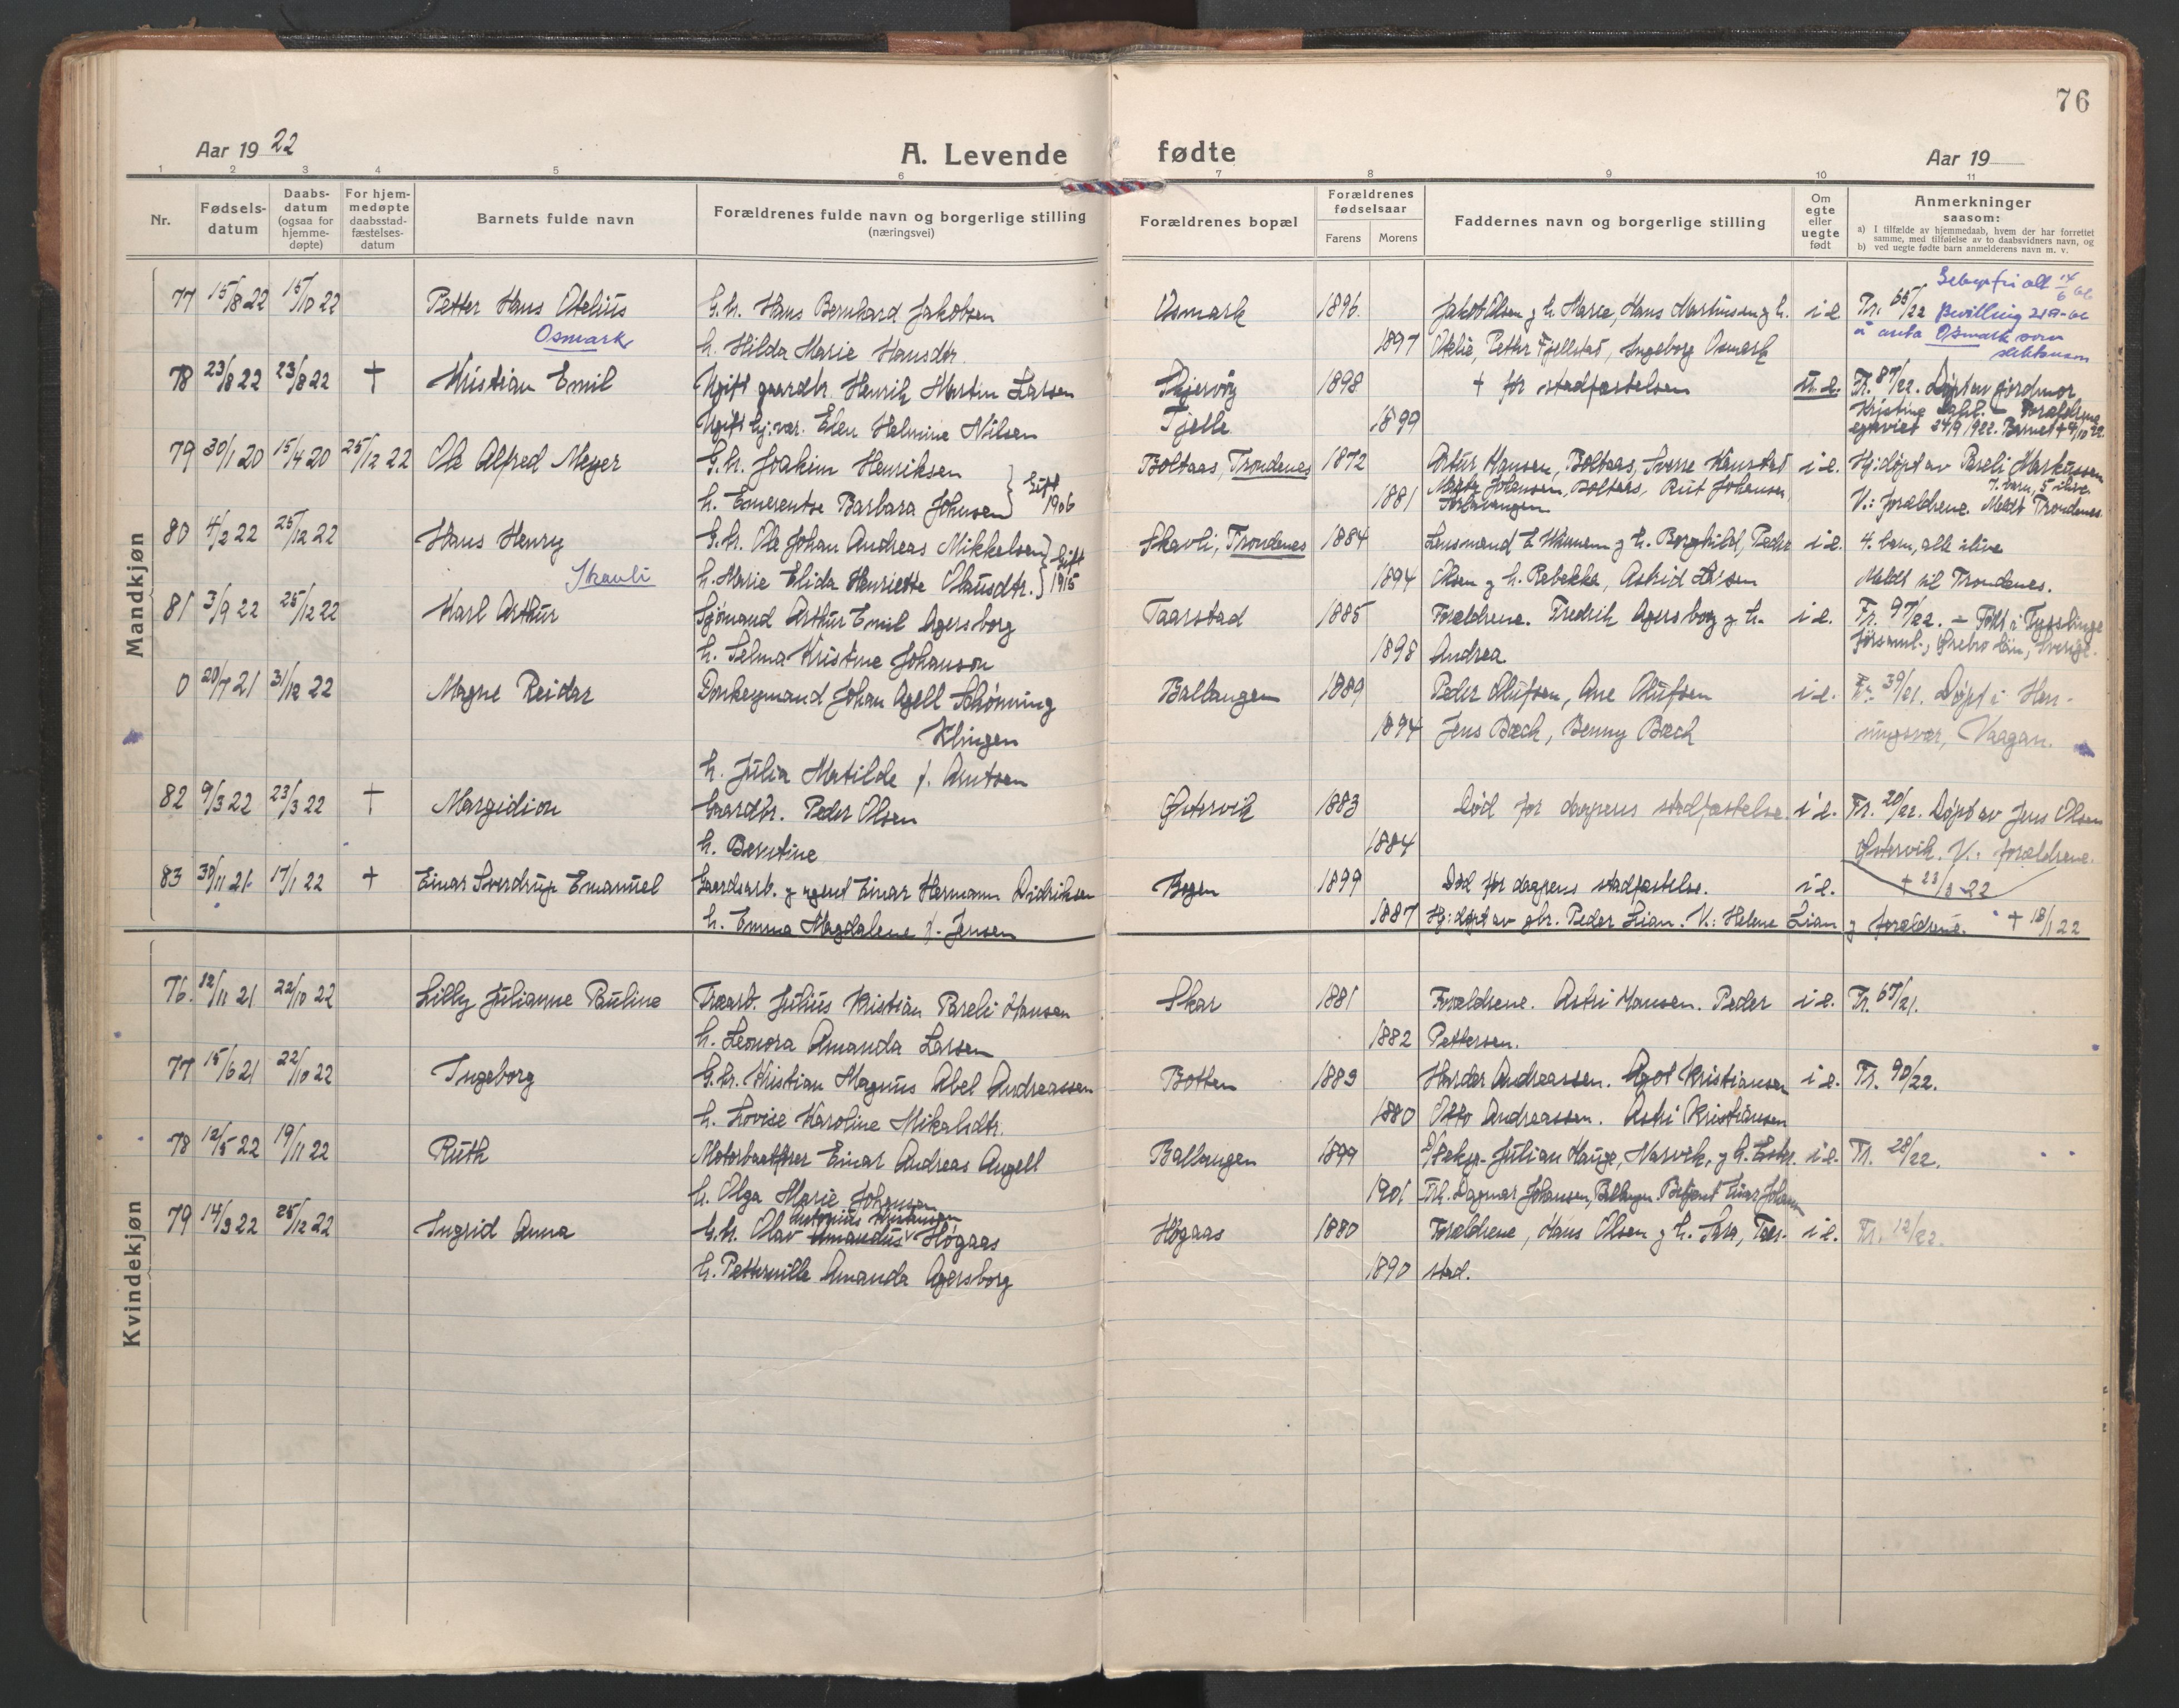 76
Aar 19 22
A. Levende fødte
Aar 19
1 2 3 4 5 6 7 8 9 10 11
Nr.
Fødsels-
datum
Daabs-
datum
(ogsaa for
hjemme-
døpte)
For hjem-
medøpte
daabsstad-
fæstelses-
datum
Barnets fulde navn
Forældrenes fulde navn og borgerlige stilling
(næringsvei)
Forældrenes bopæl
Forældrenes
fødselsaar
Farens Morens
Faddernes navn og borgerlige stilling
Om
egte
eller
uegte
født
Anmerkninger
saasom:
a) I tilfælde av hjemmedaab, hvem der har forrettet
samme, med tilføielse av to daabsvidners navn, og
b) ved uegte fødte barn anmelderens navn m. v.
Mandkjøn
77 15/8 22 15/10 22 Petter Hans Otelius G.br. Hans Bernhard Jakobsen Osmark 1896 Jakob Olsen g h. Marie, Hans Martinsen g h. i e. Fr. 65/22 Bevilling
Osmark h. Hilda Marie Hansdtr. 1897 Otelie, Petter Fjellstad, Ingeborg Osmark å anta Osmark som
slektsnavn
78 23/8 22 23/8 22 + Kristian Emil Ugift gaardbr. Henrik Martin Larsen Skjervøy 1898 + før stadfæstelsen u. e. Fr. 87/22. Døpt av jordmor
Ugift hj.vær. Elen Helmine Nilsen Tjelle 1899 Kristine Dahl. - Forældrene
egteviet 24/9 1922. Barnet + 4/10 22.
79 30/1 20 15/4 20 25/12 22 Ole Alfred Meyer G.br. Joakim Henriksen Boltaas, Trondenes 1872 Artur Hansen, Boltaas, Sverre Kanstad i e. Hj:døpt av Pareli Markussen
h. Emerentse Barbara Johnsen Gift 1906 1881 Johansen, Boltaas, Rut Johansen, 7. barn, 5 ilive.
V.: forældrene. Meldt Trondenes.
80 4/2 22 25/12 22 Hans Henry G.br. Ole Johan Andreas Mikkelsen Gift Skavli, Trondenes 1884 Lensmand h. Borghild, Peder i e. 4. barn, alle ilive
Skavli h. Marie Elida Henriette Olausdtr. 1915 1894 Olsen g h. Rebekka, Astrid Olsen Meldt til Trondenes.
81 3/9 22 25/12 22 Karl Arthur Sjømand Arthur Emil Agersborg Taarstad 1885 Forældrene. Fredrik Agersborg g h. i e. Fr. 97/22. - Født i Tysslinge
h. Selma Kristine Johanson 1898 Andrea förs.aml., Ørebro län, Sverige.
0 20/7 21 31/12 22 Magne Reidar Donkeymand Johan Agell Schönning Ballangen 1889 Peder Olufsen, Ane Olufsen i e. Fr. 39/21. Døpt i Hen-
Klingen 1894 Jens Bæck, Benny Bæck ningsvær, Vaagan.
h. Julia Matilde f. Arntsen
82 9/3 22 23/3 22 + Margidion Gaardbr. Peder Olsen Østervik 1883 Død før daapens stadfæstelse. i e. Fr. 20/22. Døpt av Jens Olsen
h. Berntine 1884 Østervik. V.: forældrene.
+ 23/3 22
83 30/11 21 17/1 22 + Einar Sverdrup Emanuel Gaardsarb. g agent Einar Hermann Didriksen Bogen 1899 Død før daapens stadfæstelse. i e.
h. Emma Magdalene f. Jensen 1887 Hj:døpt av gbr. Peder Lian. V.: Helene Lian g forældrene. + 18/1 22
Kvindekjøn
76. 12/11 21 22/10 22 Lilly Julianne Pauline Træarb. Julius Kristian Pareli Hansen Skar 1881 Forældrene. Astri Hansen. Peder i e. Fr. 65/21.
h. Leonora Amanda Larsen 1882 Pettersen.
77 15/6 21 22/10 22 Ingeborg G.br. Kristian Magnus Abel Andreassen Botten 1883 Harder Andreassen. Agot Kristiansen i e. Fr. 90/22.
h. Lovise Karoline Mikalsdtr. 1880 Otto Andreassen. Astri Kristiansen
78 12/5 22 19/11 22 Ruth Motorbaatfører Einar Andreas Angell Ballangen 1899 Julian Hauge, Narvik, g h. Ester. i e. Fr. 28/22.
h. Olga Marie Johansen 1901 Frk. Dagmar Johansen, Ballangen. Betjent Einar Johansen
79 14/3 22 25/12 22 Ingrid Anna Antonius Kristiansen
G.br. Olav Amandus Høgaas Høgaas 1880 Forældrene, Hans Olsen g h. Sara, Taar- i e. Fr. 12/22.
h. Petternille Amanda Agersborg 1890 stad.